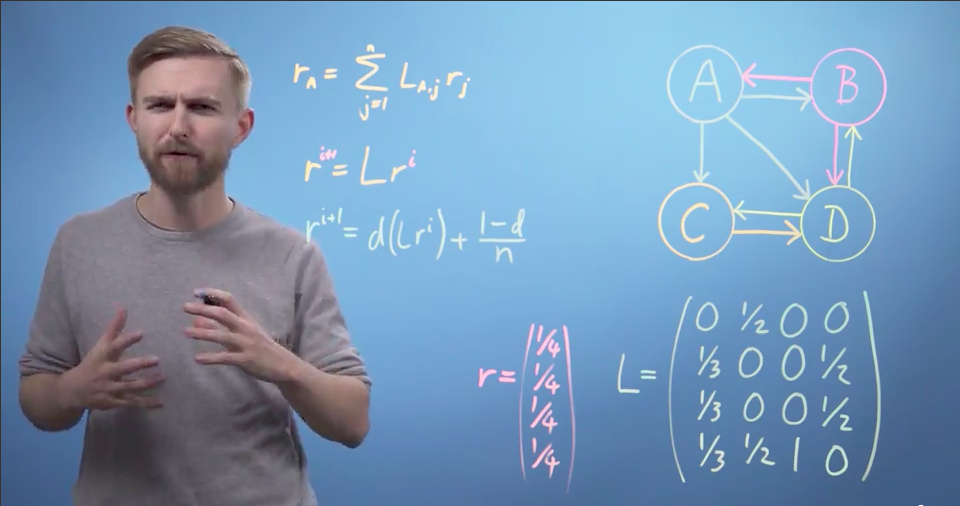 r_A = Σ_{j=1}^{n} L_{A,j} r_j
r^{i+1} = L r^i
r^{i+1} = d(L r^i) + (1-d)/n
A B
C D
r = (1/4
1/4
1/4
1/4)
L = (0 1/2 0 0
1/3 0 0 1/2
1/3 0 0 1/2
1/3 1/2 1 0)